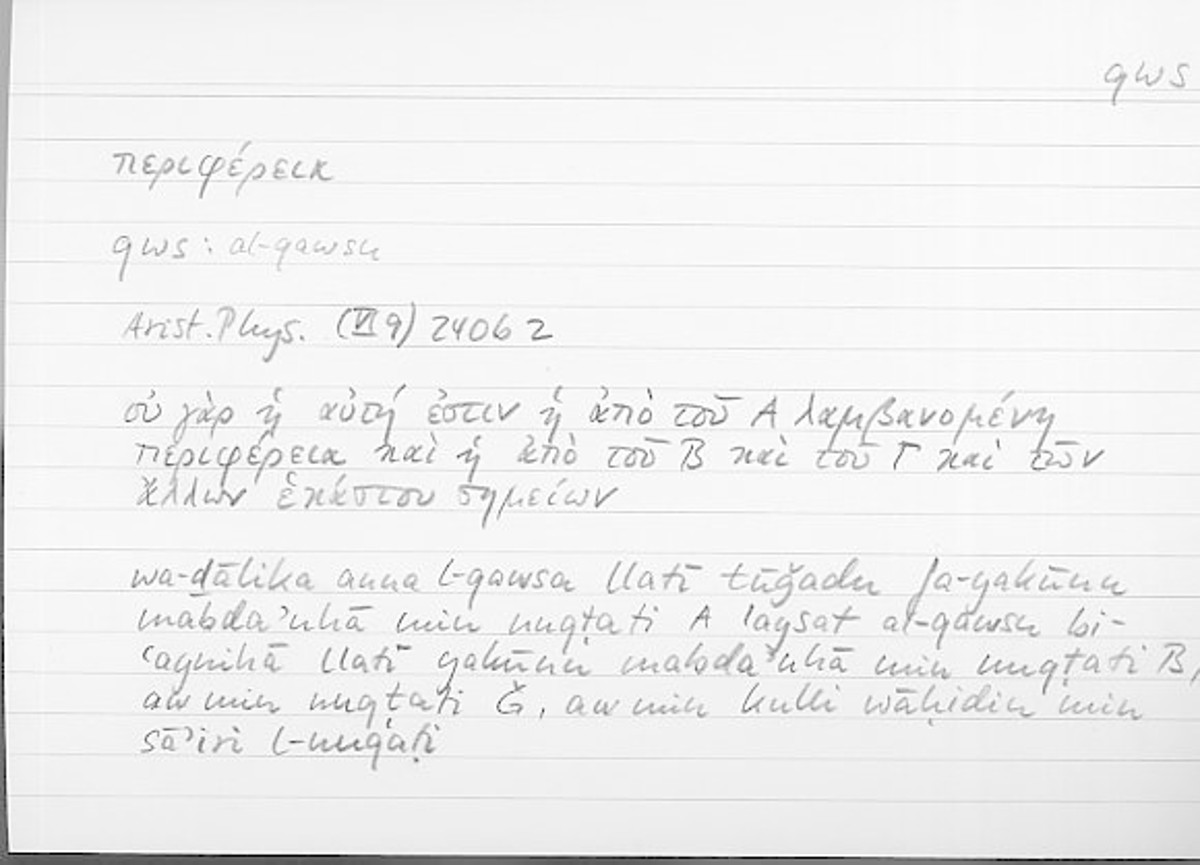 qws
περιφέρεια
qws: al-qawsu
Arist. Phys. (VI 9) 240b2
οὐ γὰρ ἡ αὐτή ἐστιν ἡ ἀπὸ τοῦ Α λαμβανομένη
περιφέρεια καὶ ἡ ἀπὸ τοῦ Β καὶ τοῦ Γ καὶ τῶν
ἄλλων ἑκάστου σημείων
wa-ḏālika anna l-qawsa llatī tūǧadu fa-yakūnu
mabdaʾuhā min nuqṭati A laysat al-qawsu bi-
ʿaynihā llatī yakūnu mabdaʾuhā min nuqṭati B,
aw min nuqṭati Ǧ, aw min kulli wāḥidin min
sāʾiri l-nuqaṭi